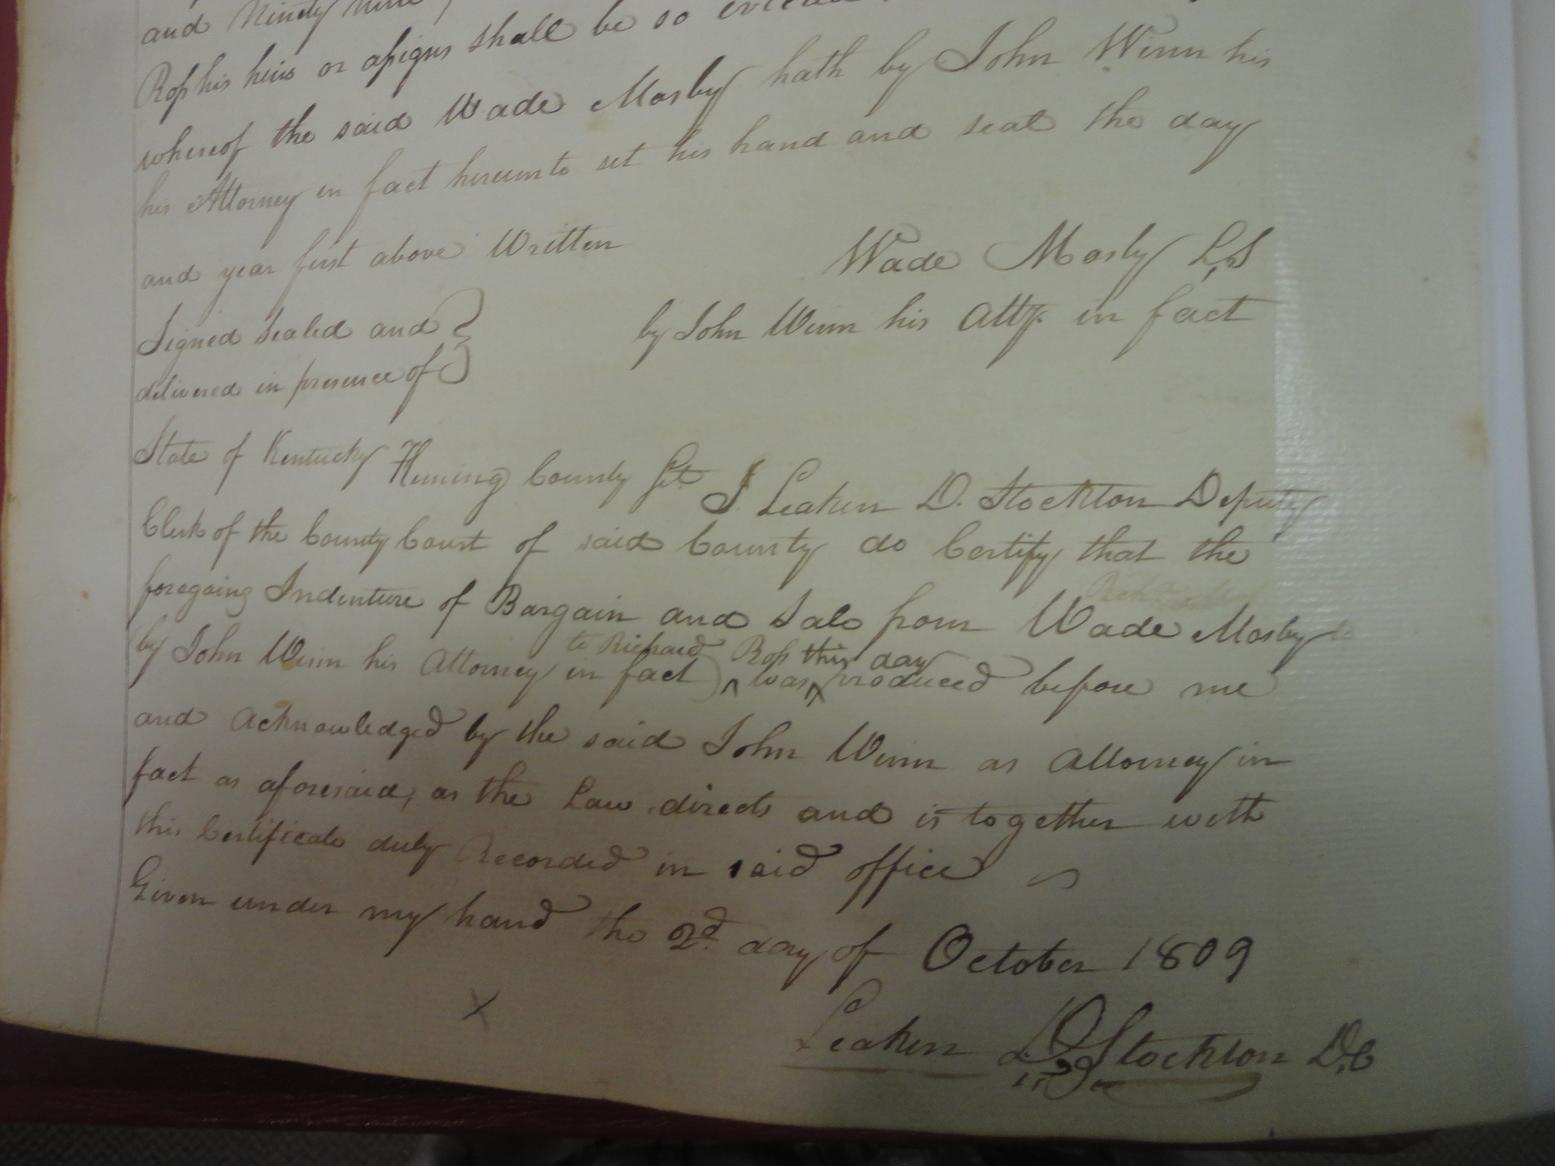 and Ninety nine
Ross his heirs or assigns shall be so
whereof the said Wade Mosby hath by John Winn his
his Attorney in fact hereunto set his hand and seal the day
and year first above Written
Wade Mosby L,S
Signed Sealed and
by John Winn his Atty. in fact
delivered in presence of
State of Kentucky Fleming County Sct. I Leaken D. Stockton Deputy
Clerk of the County Court of said County do Certify that the
foregoing Indenture of Bargain and Sale from Wade Mosby to
to Richard Ross this day
by John Winn his Attorney in fact) ^ was ^ produced before me
and acknowledged by the said John Winn as Attorney in
fact as aforesaid, as the Law directs and is together with
this Certificate duly Recorded in said office
Given under my hand the 2d. day of October 1809
x
Leaken D. Stockton D,C